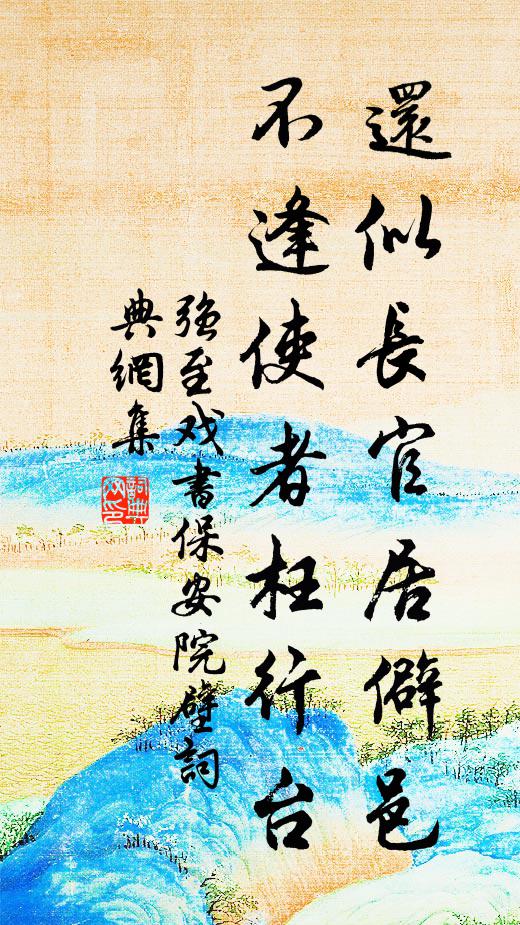 還似長官居僻邑
不逢使者枉行台
強至戏書保安院壁詞
典網集